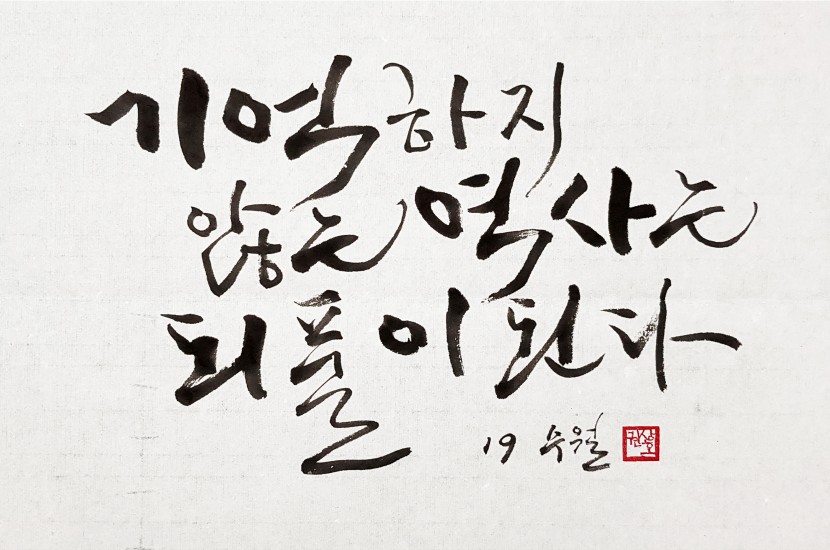 기억하지
않는 역사는
되풀이 된다
19 수월